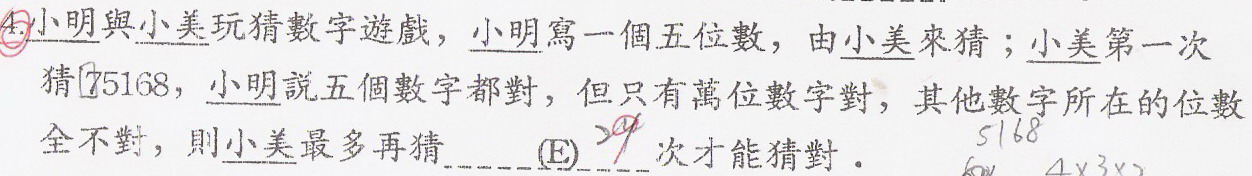 4.小明與小美玩猜數字遊戲，小明寫一個五位數，由小美來猜；小美第一次
猜75168，小明說五個數字都對，但只有萬位數字對，其他數字所在的位數
全不對，則小美最多再猜(E)次才能猜對．
5168
4×3×2